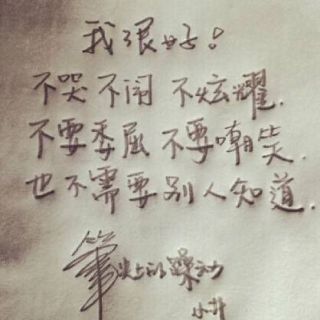 我很好！
不哭不闹 不炫耀.
不要委屈 不要嘲笑.
也不需要别人知道.
笔尖上的躁动
小井